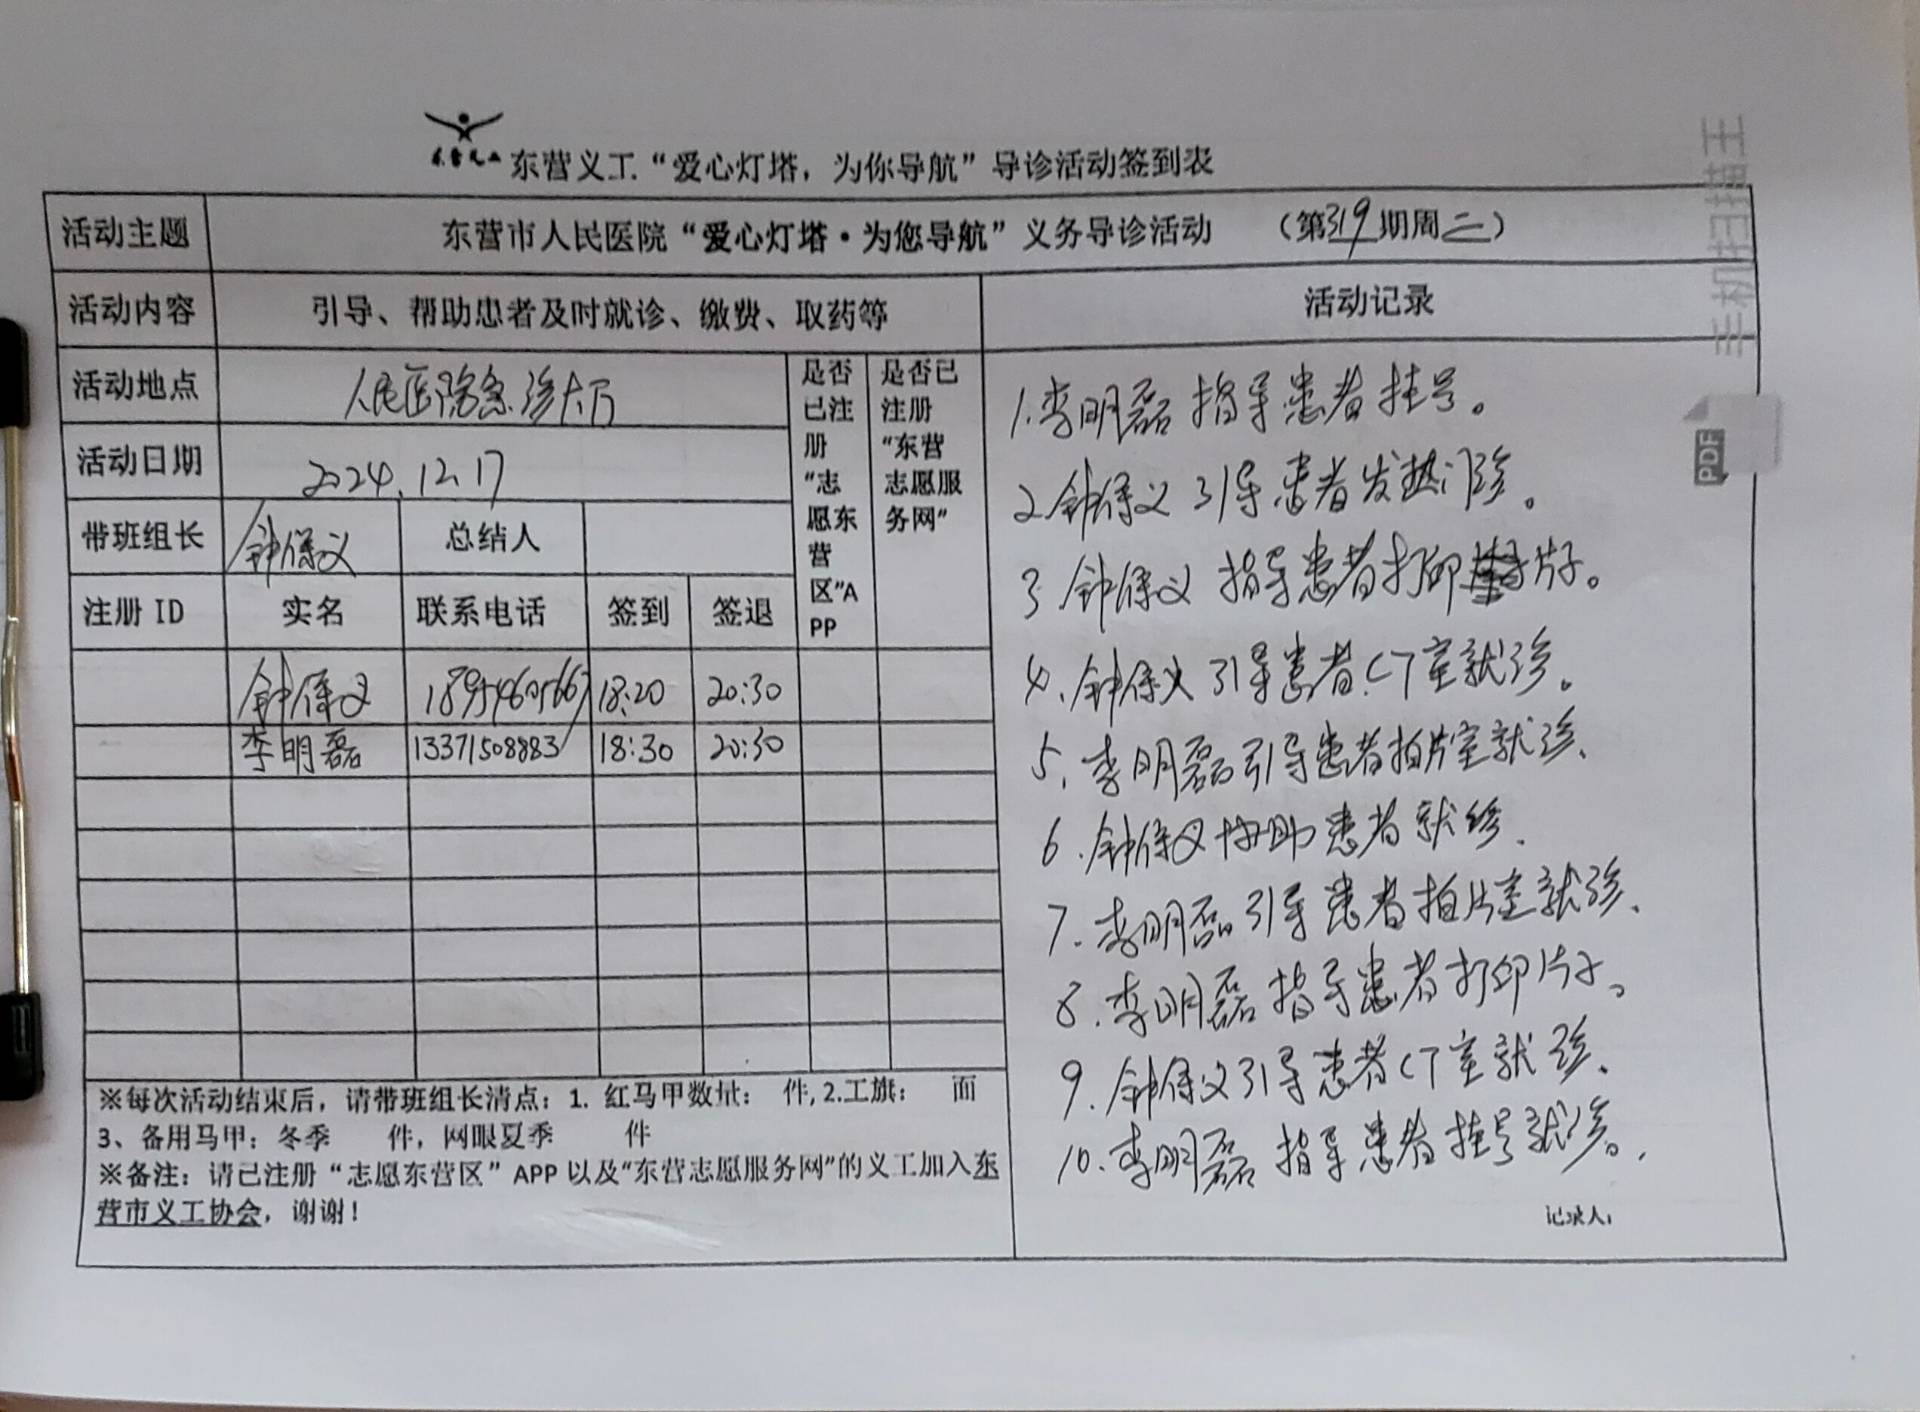 东营义工
东营义工“爱心灯塔，为你导航”导诊活动签到表
活动主题 东营市人民医院“爱心灯塔·为您导航”义务导诊活动 （第319期周二）
活动内容 引导、帮助患者及时就诊、缴费、取药等 活动记录
活动地点 人民医院急诊大厅
活动日期 2024.12.17
带班组长 钟保义 总结人
是否已注册“志愿东营区”APP
是否已注册“东营志愿服务网”
注册 ID 实名 联系电话 签到 签退
钟保义 18954605667 18:20 20:30
李明磊 13371508883 18:30 20:30
※每次活动结束后，请带班组长清点：1. 红马甲数量： 件, 2.工旗： 面
3、备用马甲：冬季 件，网眼夏季 件
※备注：请已注册“志愿东营区”APP 以及“东营志愿服务网”的义工加入东
营市义工协会，谢谢！
1.李明磊 指导患者挂号。
2.钟保义 引导患者发热门诊。
3.钟保义 指导患者打印片子。
4.钟保义 引导患者CT室就诊。
5.李明磊引导患者拍片室就诊、
6.钟保义协助患者就诊.
7.李明磊引导患者拍片室就诊、
8.李明磊指导患者打印片子。
9.钟保义引导患者CT室就诊、
10.李明磊 指导患者挂号就诊。
记录人：
手机扫描王
PDF